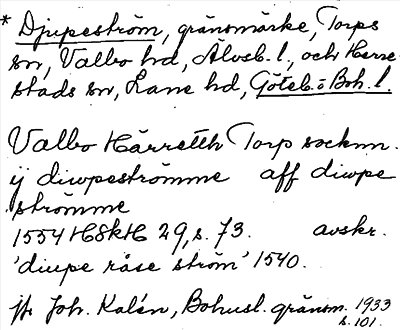 * Djupeström, gränsmärke, Torps
sn, Valbo hd, Älvsb. l., och Herre-
stads sn, Lane hd, Göteb. o Boh. l.
Valbo Härretth Torp socknn.
ij diwpeströmme aff diwpe
strömme
1554 HSkH 29, s. 73. avskr.
'diupe råse ström' 1540.
jfr Joh. Kalén, Bohusl. gränsm. 1933
s. 101.